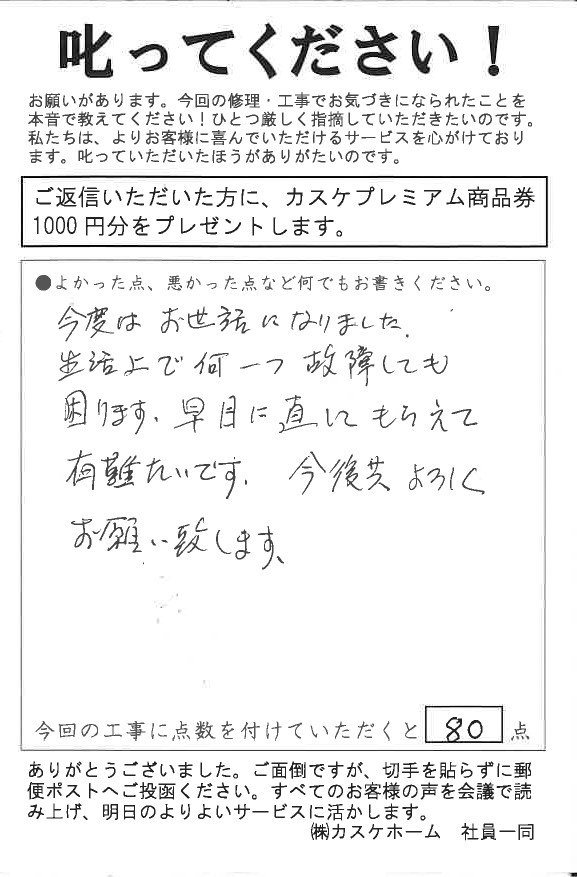 叱ってください！
お願いがあります。今回の修理・工事でお気づきになられたことを
本音で教えてください！ひとつ厳しく指摘していただきたいのです。
私たちは、よりお客様に喜んでいただけるサービスを心がけており
ます。叱っていただいたほうがありがたいのです。
ご返信いただいた方に、カスケプレミアム商品券
1000円分をプレゼントします。
●よかった点、悪かった点など何でもお書きください。
今度は お世話になりました.
生活上で何一つ故障しても
困ります. 早目に直してもらえて
有難たいです. 今後共よろしく
お願い致します、
今回の工事に点数を付けていただくと 80 点
ありがとうございました。ご面倒ですが、切手を貼らずに郵
便ポストへご投函ください。すべてのお客様の声を会議で読
み上げ、明日のよりよいサービスに活かします。
㈱カスケホーム　社員一同